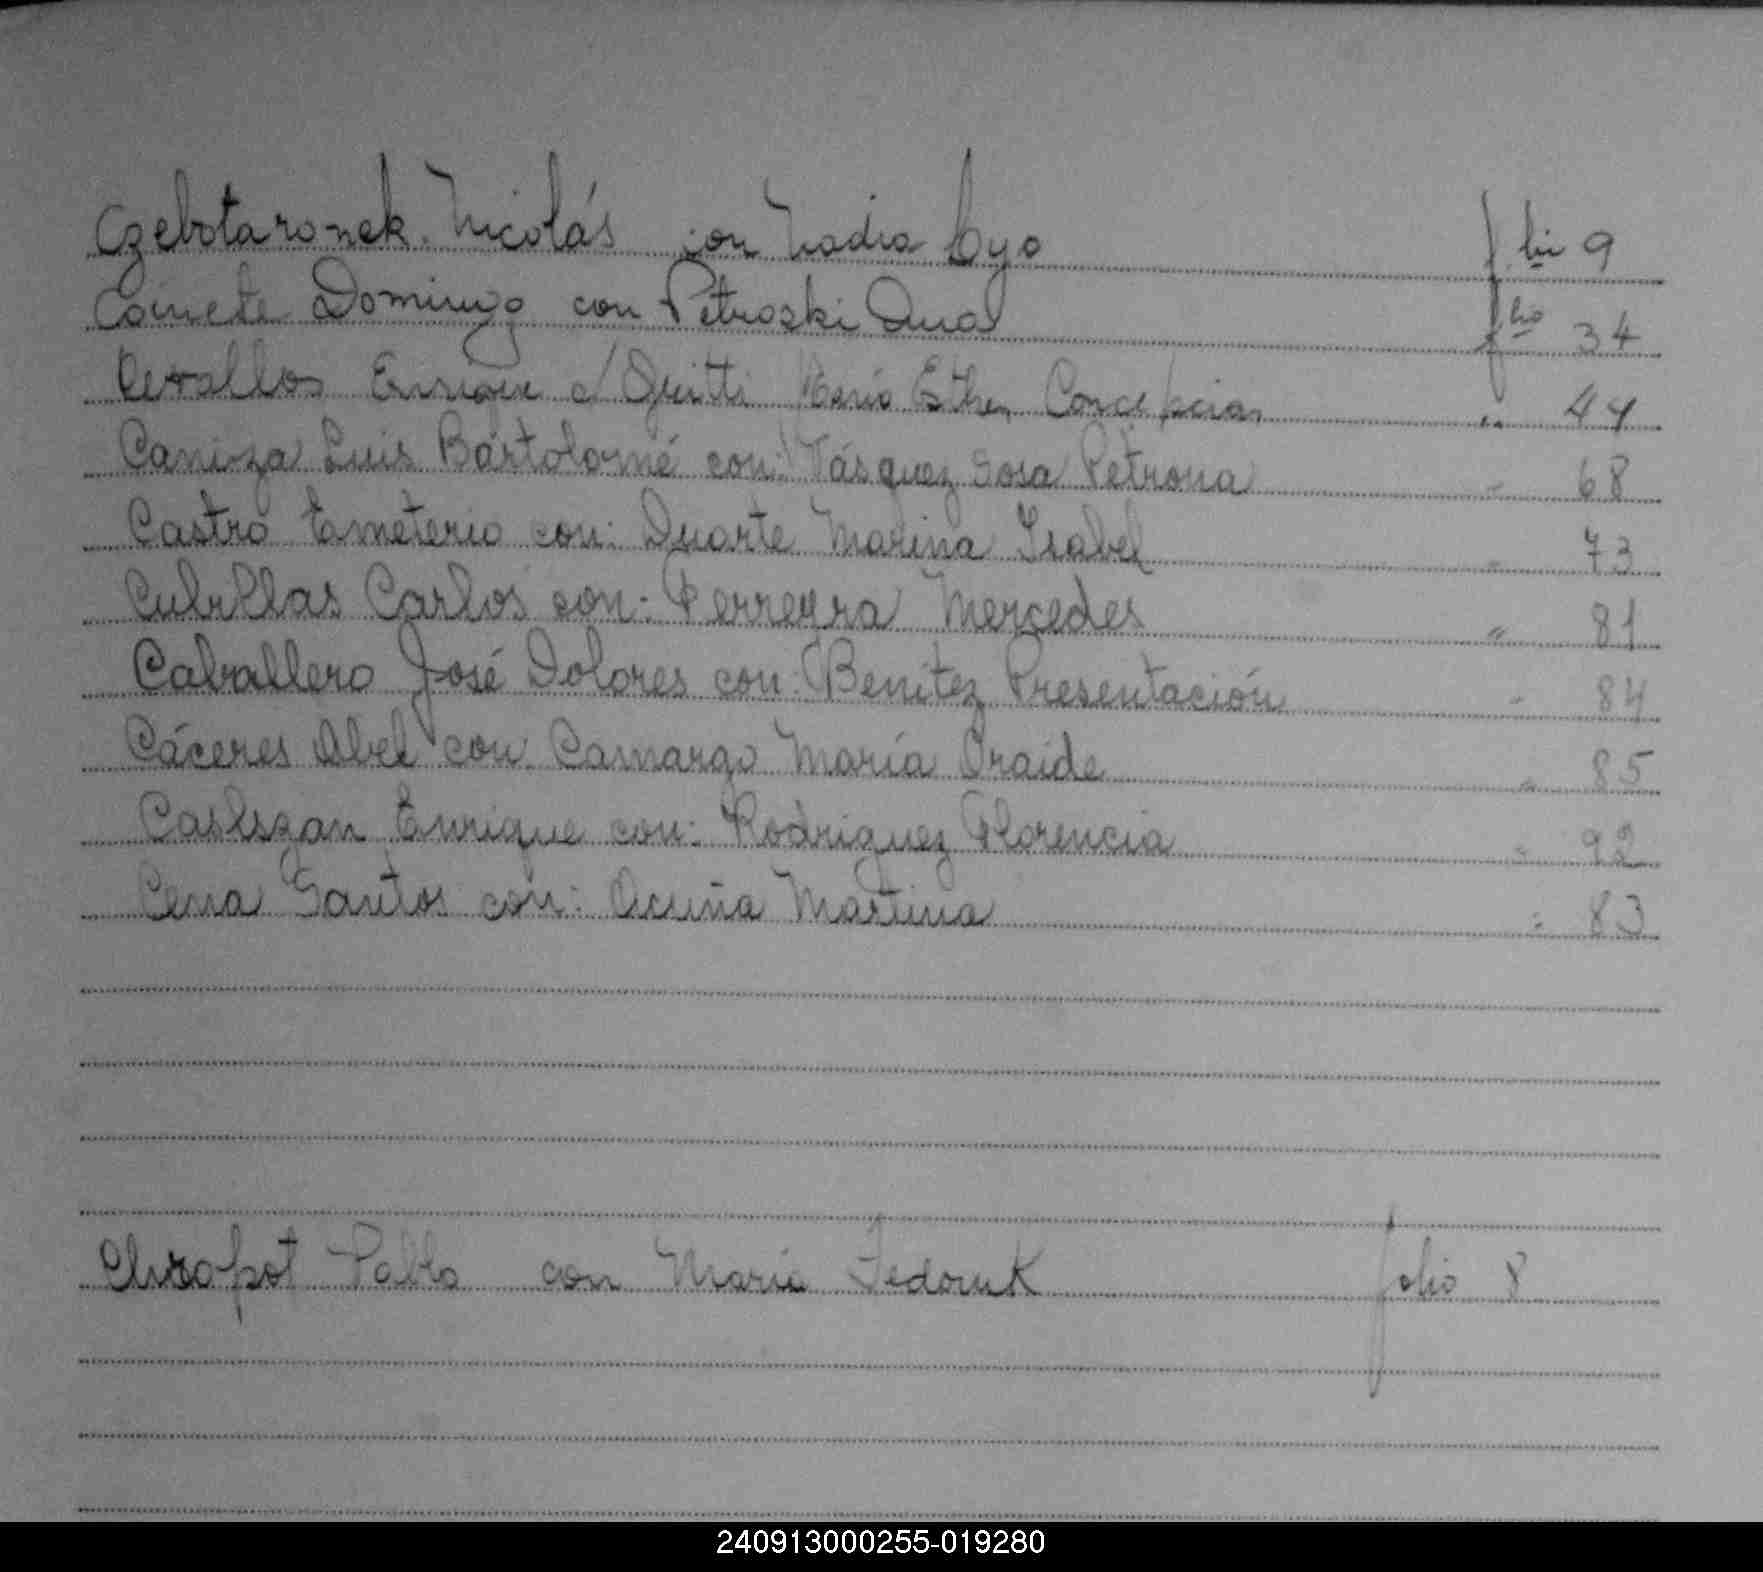 Czebotaronek. Nicolás con Nadia 9
Domingo con Petroski Ana fho 34
Enrique c/ María Esther Concepcion " 44
Caniza Luis Bártolomé con: Vásquez Sosa Petrona " 68
Castro Emeterio con: Duarte Marina Isabel " 73
Cubillas Carlos con: Ferreyra Mercedes " 81
Caballero José Dolores con: Benítez Presentación " 84
Cáceres Abel con: Camargo María Oraide " 85
Enrique con: Rodriguez Florencia " 92
Cena Santos con: Acuña Martina " 83
Pablo con María Fedoruk folio 8
240913000255-019280